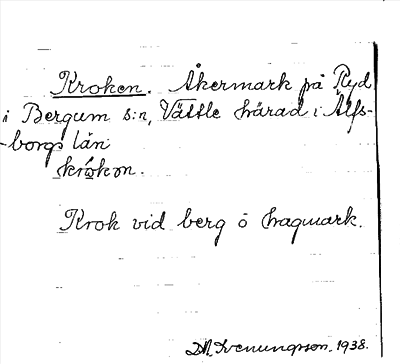 Kroken. Åkermark på Ryd
i Bergum s:n, Vättle härad i Älfs-
-borgs län
krókən.
Krok vid berg o hagmark.
D.N. Svenungsson. 1938.